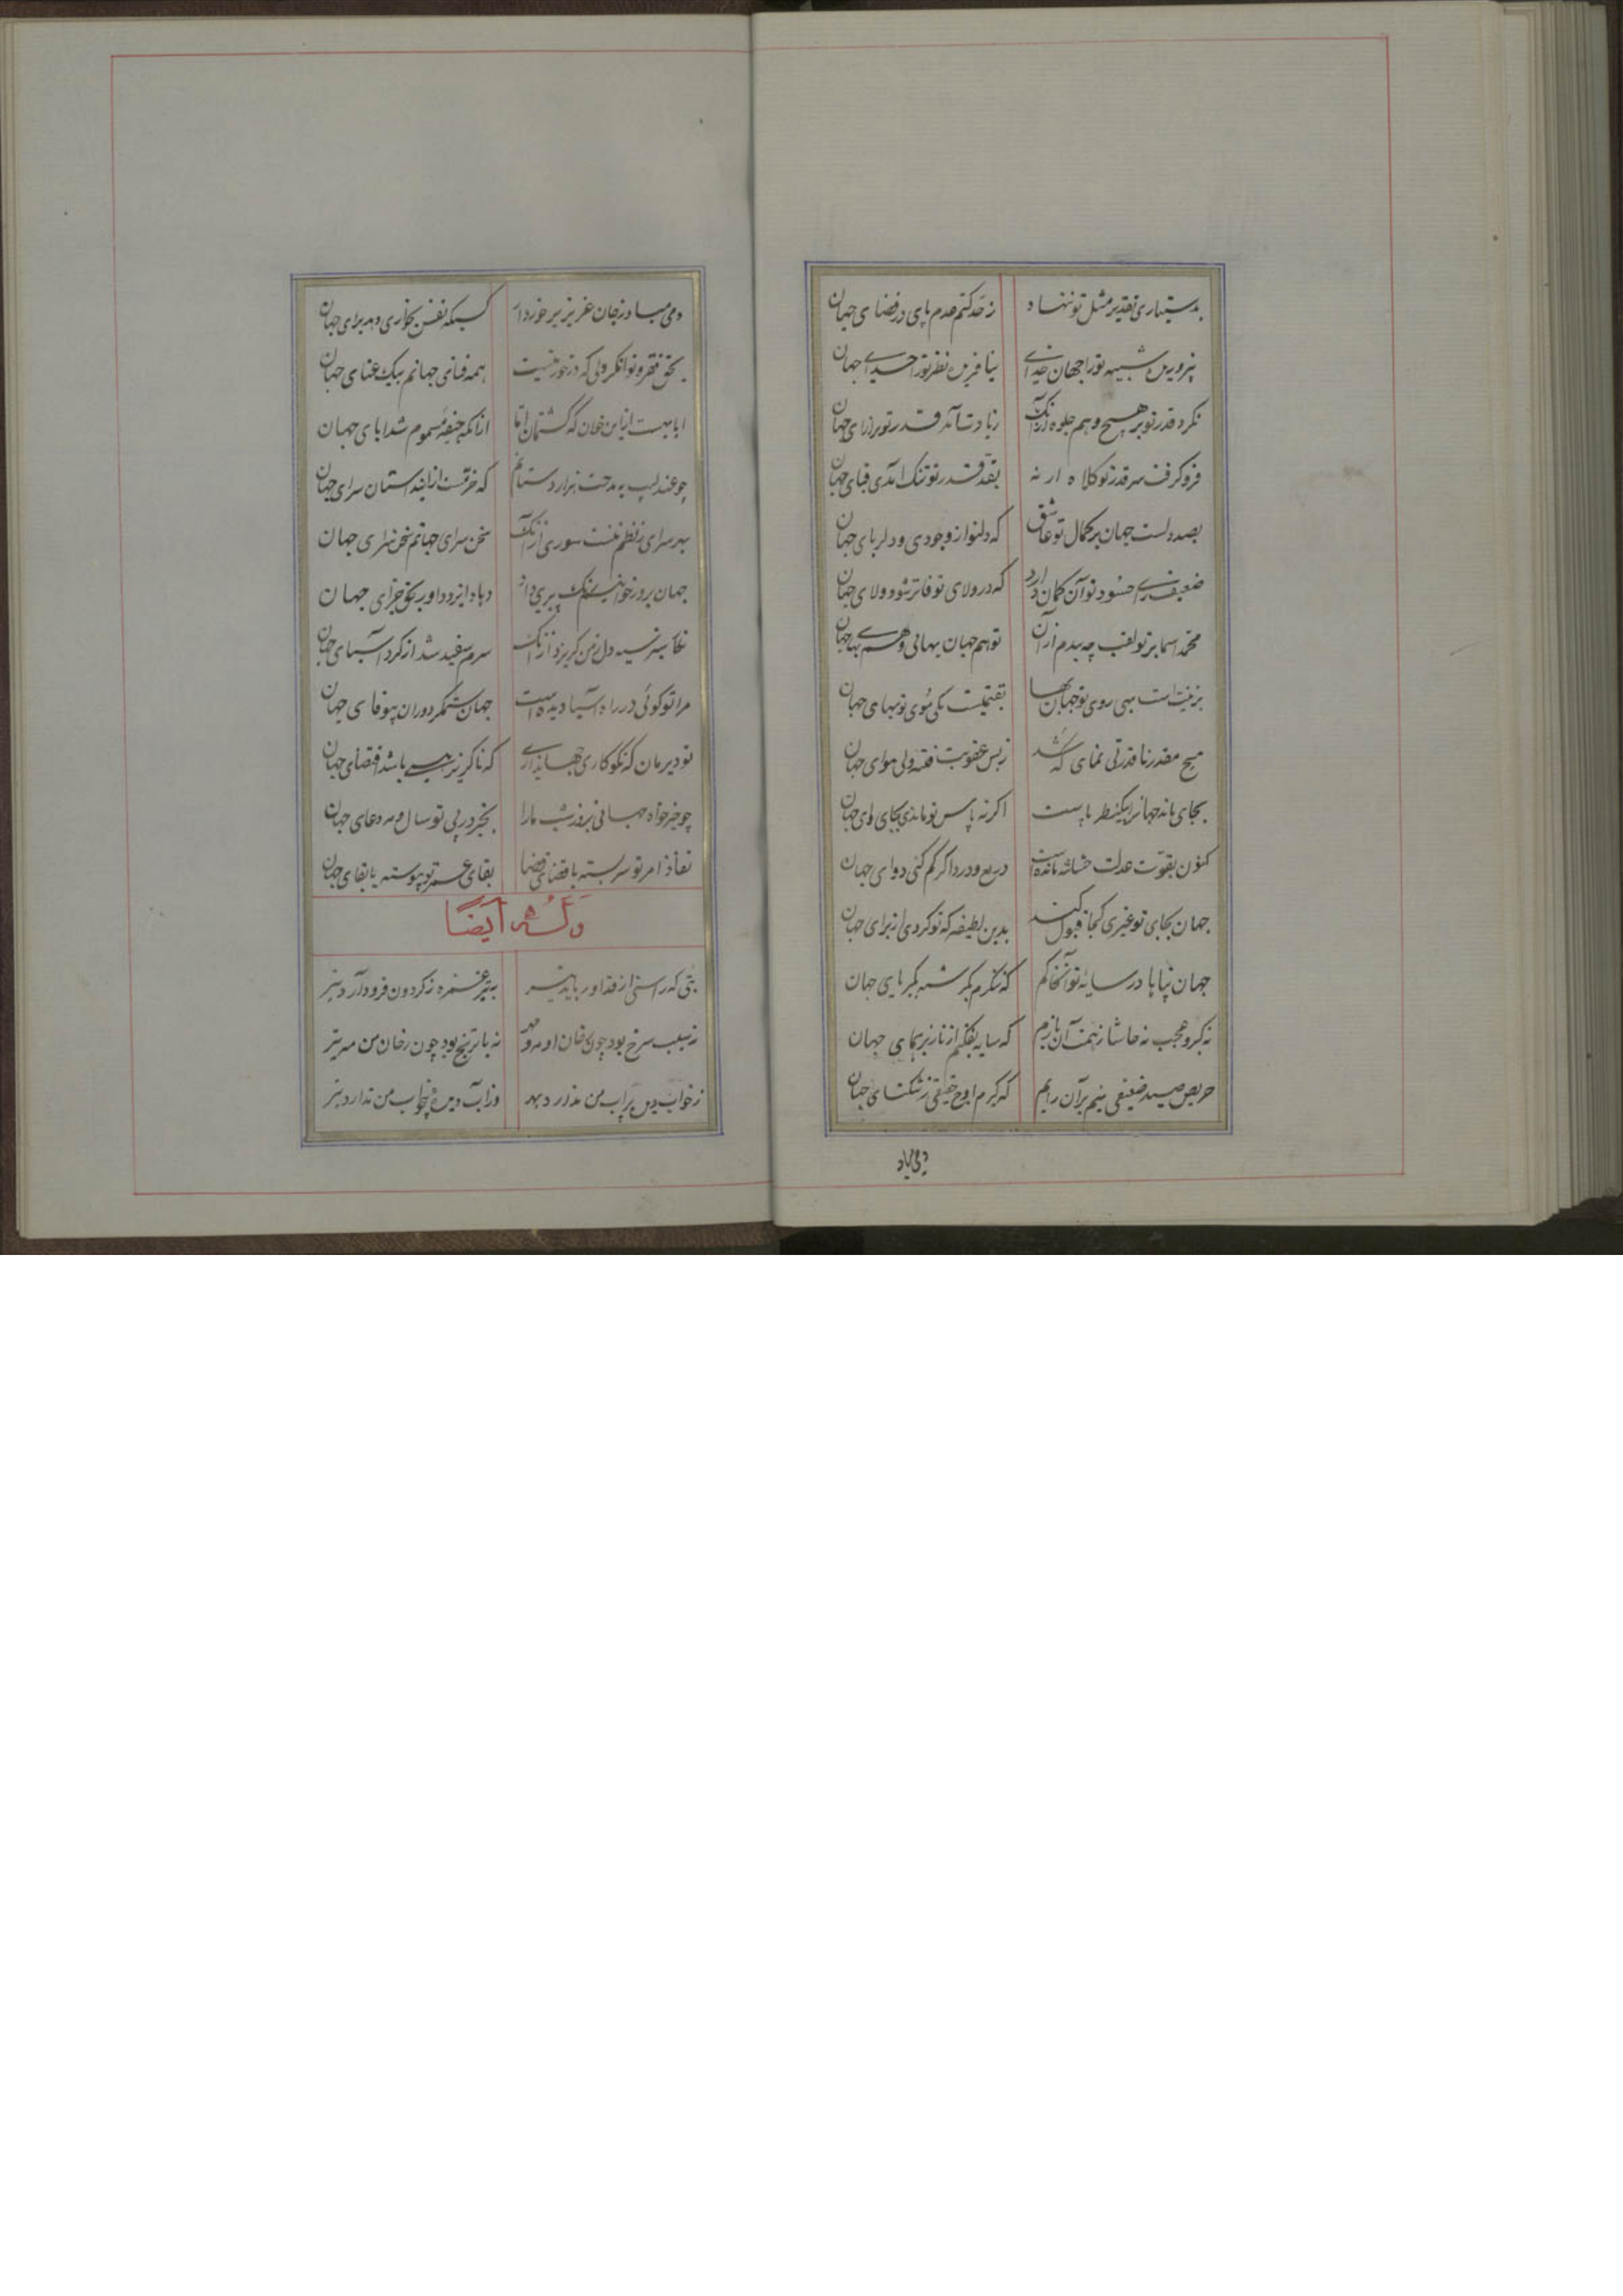 بدستیاری تقدیر مثل تو ننهاد ز حد کتم عدم پای در فضای جهان
نپرورید شبیه تو را جهان خدای نیافرید نظیر تو را خدای جهان
نکرد قدر تو بر هیچ وهم جلوه از آنک زیادت آمد قدر تو بر ازای جهان
فرو گرفت سر قدر تو کلاه ار نه بقد قدر تو تنگ آمدی قبای جهان
بصد دلست جهان بر کمال تو عاشق که دلنواز وجودی و دلربای جهان
ضعیف رای حسود تو آن گمان دارد که در ولای تو فاتر شود ولای جهان
محمد اسما بر تو لقب چه بندم از آن تو هم جهان بهائی و هم بهای جهان
بزینت است بهی روی تو جهان بها بقیمتست یکی موی تو بهای جهان
مسیح مقدرتا قدرتی نمای که شد ز بس عفونت فتنه وبی هوای جهان
بجای ماند جهان را یکی نظر بایست اگر نه پاس تو ماندی بجای وای جهان
کنون بقوت عدلت حشاشه مانده است دریغ و درد اگر کم کنی دوای جهان
جهان بجای تو غیری کجا قبول کند بدین لطیفه که تو کردی از برای جهان
جهان پناها در سایهٔ تو آنجا کم که ننگرم بکرشمه بکبریای جهان
نه کبر و عجب نه حاشا ز همت آن بازم که سایه نفکنم از ناز بر همای جهان
حریص صید ضعیفی نیم بر آن رایم که گیرم اوج حقیقی ز تنگنای جهان
دمی مباد
دمی مباد ز جان عزیز برخوردار کسیکه نفس بخواری دهد برای جهان
بحق فقر و توانگر دلی که در خور نیست همه فنای جهانم بیک غنای جهان
ابا بهست از این خوان که گشتمان از آنکه جیفهٔ مسموم شد ابای جهان
چو عندلیب به مدحت هزار دستانم که خرمست از این داستان سرای جهان
سرسرای ز نظم منست سوری از آنک سخن سرای جهانم سخن سرای جهان
جهان بروز جوانیم رنگ پیری داد دهاد ایزد داور بحق جزای جهان
سیه دل ز من گریزد از آنک سرم سفید شد از گرد آسیای جهان
مرا تو گوئی در راه آسیا دیده است جهان ستمگر دوران بیوفای جهان
تو دیر مان که نکوکاری و جهانداری که ناگزیر همی باشد اقتضای جهان
چو خیرخواه جهانی بروز و شب ما را بخیر در پی تو سال و مه دعای جهان
نفاذ امر تو سر بسته با قضای قضا بقای عمر تو پیوسته با بقای جهان
وله ایضا
بتی که راستی از قد او رباید تیر بتیر غمزه ز گردون فرود آرد تیر
نه سیب سرخ بود چون رخان او مه و مهر نه با ترنج بود چون رخان من مه تیر
ز خواب دیده پر آب من ندارد بهر وز آب دیده بیخواب من ندارد تیر